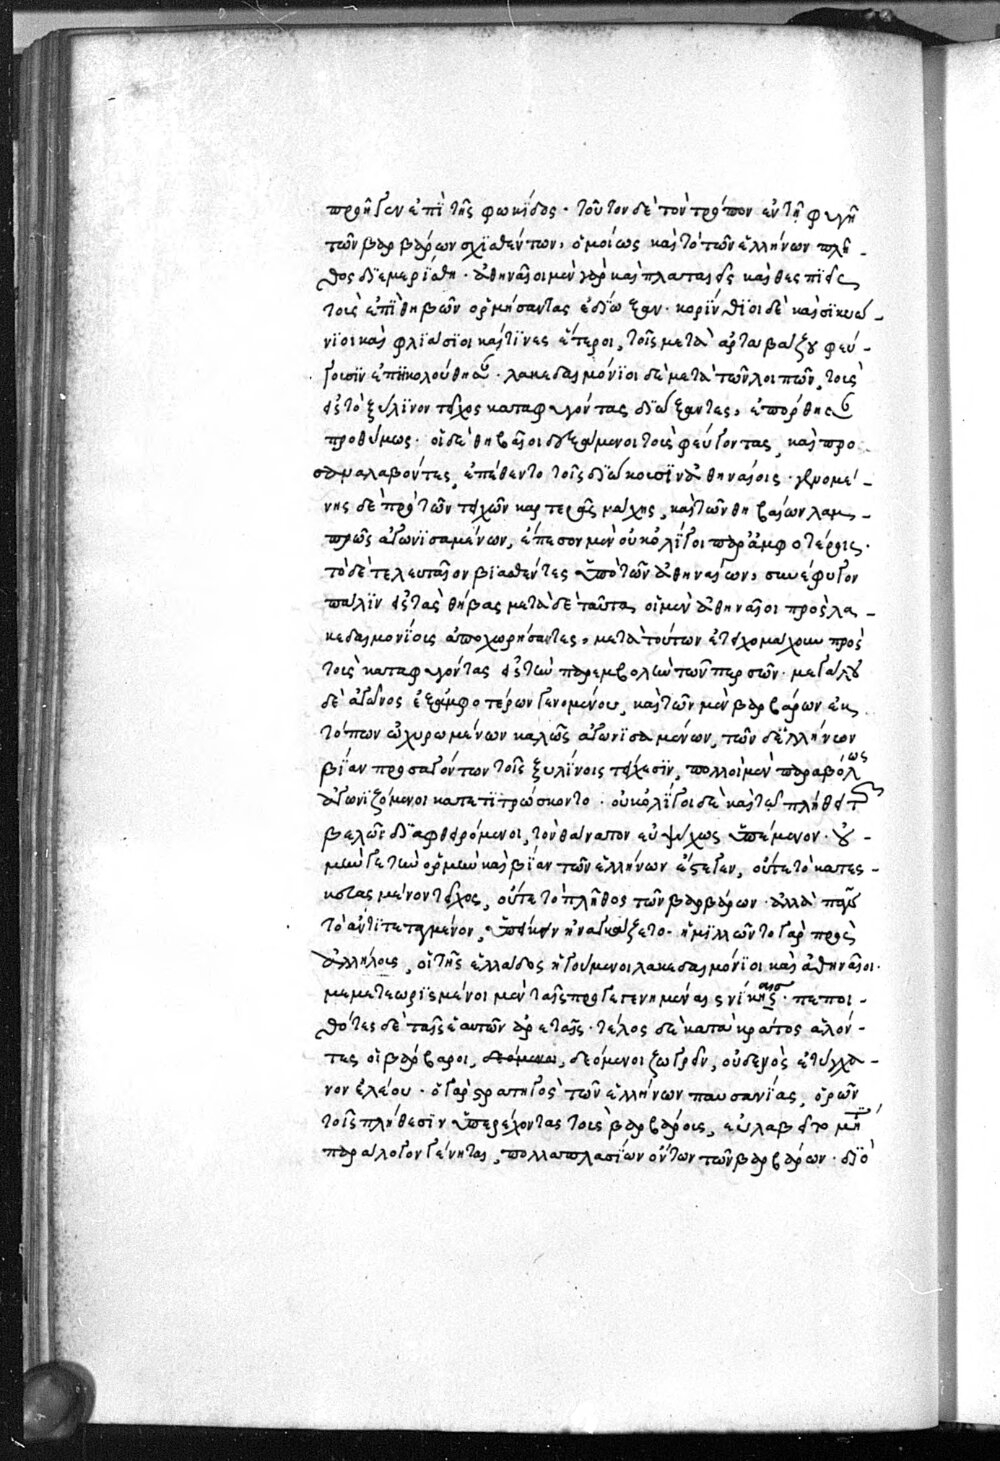 προῆγεν ἐπὶ τῆς φωκίδος· τοῦτον δὲ τὸν τρόπον ἐν τῇ φυγῇ
τῶν βαρβάρων σχισθέντων, ὁμοίως καὶ τὸ τῶν ἑλλήνων πλῆ-
θος διεμερίσθη· ἀθηναῖοι μὲν γὰρ καὶ πλαταιεῖς καὶ θεσπιεῖς
τοὺς ἐπὶ θηβῶν ὁρμήσαντας ἐδίωξαν· κορίνθιοι δὲ καὶ σικυώ-
νιοι καὶ φλιάσιοι καί τινες ἕτεροι, τοῖς μετὰ ἀρταβάζου φεύ-
γουσιν ἐπηκολούθησαν· λακεδαιμόνιοι δὲ μετὰ τῶν λοιπῶν, τοὺς
εἰς τὸ ξύλινον τεῖχος καταφυγόντας διώξαντες, ἐπόρθησαν
προθύμως· οἱ δὲ θηβαῖοι δεξάμενοι τοὺς φεύγοντας, καὶ προ
σαναλαβόντες, ἐπέθεντο τοῖς διώκουσιν ἀθηναίοις· γενομέ-
νης δὲ πρὸ τῶν τειχῶν καρτερᾶς μάχης, καὶ τῶν θηβαίων λαμ-
πρῶς ἀγωνισαμένων, ἔπεσον μὲν οὐκ ὀλίγοι παρ' ἀμφοτέροις·
τὸ δὲ τελευταῖον βιασθέντες ὑπὸ τῶν ἀθηναίων, συνέφυγον
πάλιν εἰς τὰς θήβας μετὰ δὲ ταῦτα οἱ μὲν ἀθηναῖοι πρὸς λα-
κεδαιμονίους ἀποχωρήσαντες, μετὰ τούτων ἐτειχομάχουν πρὸς
τοὺς καταφυγόντας εἰς τὴν παρεμβολὴν τῶν περσῶν· μεγάλου
δὲ ἀγῶνος ἐξ ἀμφοτέρων γενομένου, καὶ τῶν μὲν βαρβάρων ἐκ
τόπων ὠχυρωμένων καλῶς ἀγωνισαμένων, τῶν δὲ ἑλλήνων
βίαν προσαγόντων τοῖς ξυλίνοις τείχεσιν, πολλοὶ μὲν παραβόλως
ἀγωνιζόμενοι κατετιτρώσκοντο· οὐκ ὀλίγοι δὲ καὶ τῷ πλήθει τῶν
βελῶν διαφθειρόμενοι, τὸν θάνατον εὐψύχως ὑπέμενον· οὐ
μὴν γε τὴν ὁρμὴν καὶ βίαν τῶν ἑλλήνων ἔστεγεν, οὔτε τὸ κατεσ-
κευασμένον τεῖχος, οὔτε τὸ πλῆθος τῶν βαρβάρων· ἀλλὰ πᾶν
τὸ ἀντιτεταγμένον, ὑπείκειν ἠναγκάζετο· ἡμιλλῶντο γὰρ πρὸς
ἀλλήλους, οἱ τῆς ἑλλάδος ἡγούμενοι λακεδαιμόνιοι καὶ ἀθηναῖοι·
μεμετεωρισμένοι μὲν ταῖς προγεγενημέναις νίκαις· πεποι-
θότες δὲ ταῖς ἑαυτῶν ἀρεταῖς· τέλος δὲ κατὰ κράτος ἁλόν-
τες οἱ βάρβαροι, δεόμενοι ζωγρεῖν, οὐδενὸς ἐτύγχα-
νον ἐλέου· ὁ γὰρ στρατηγὸς τῶν ἑλλήνων παυσανίας, ὁρῶν
τοῖς πλήθεσιν ὑπερέχοντας τοὺς βαρβάρους, εὐλαβεῖτο μή τι
παράλογον γένηται, πολλαπλασίων ὄντων τῶν βαρβάρων· διὸ